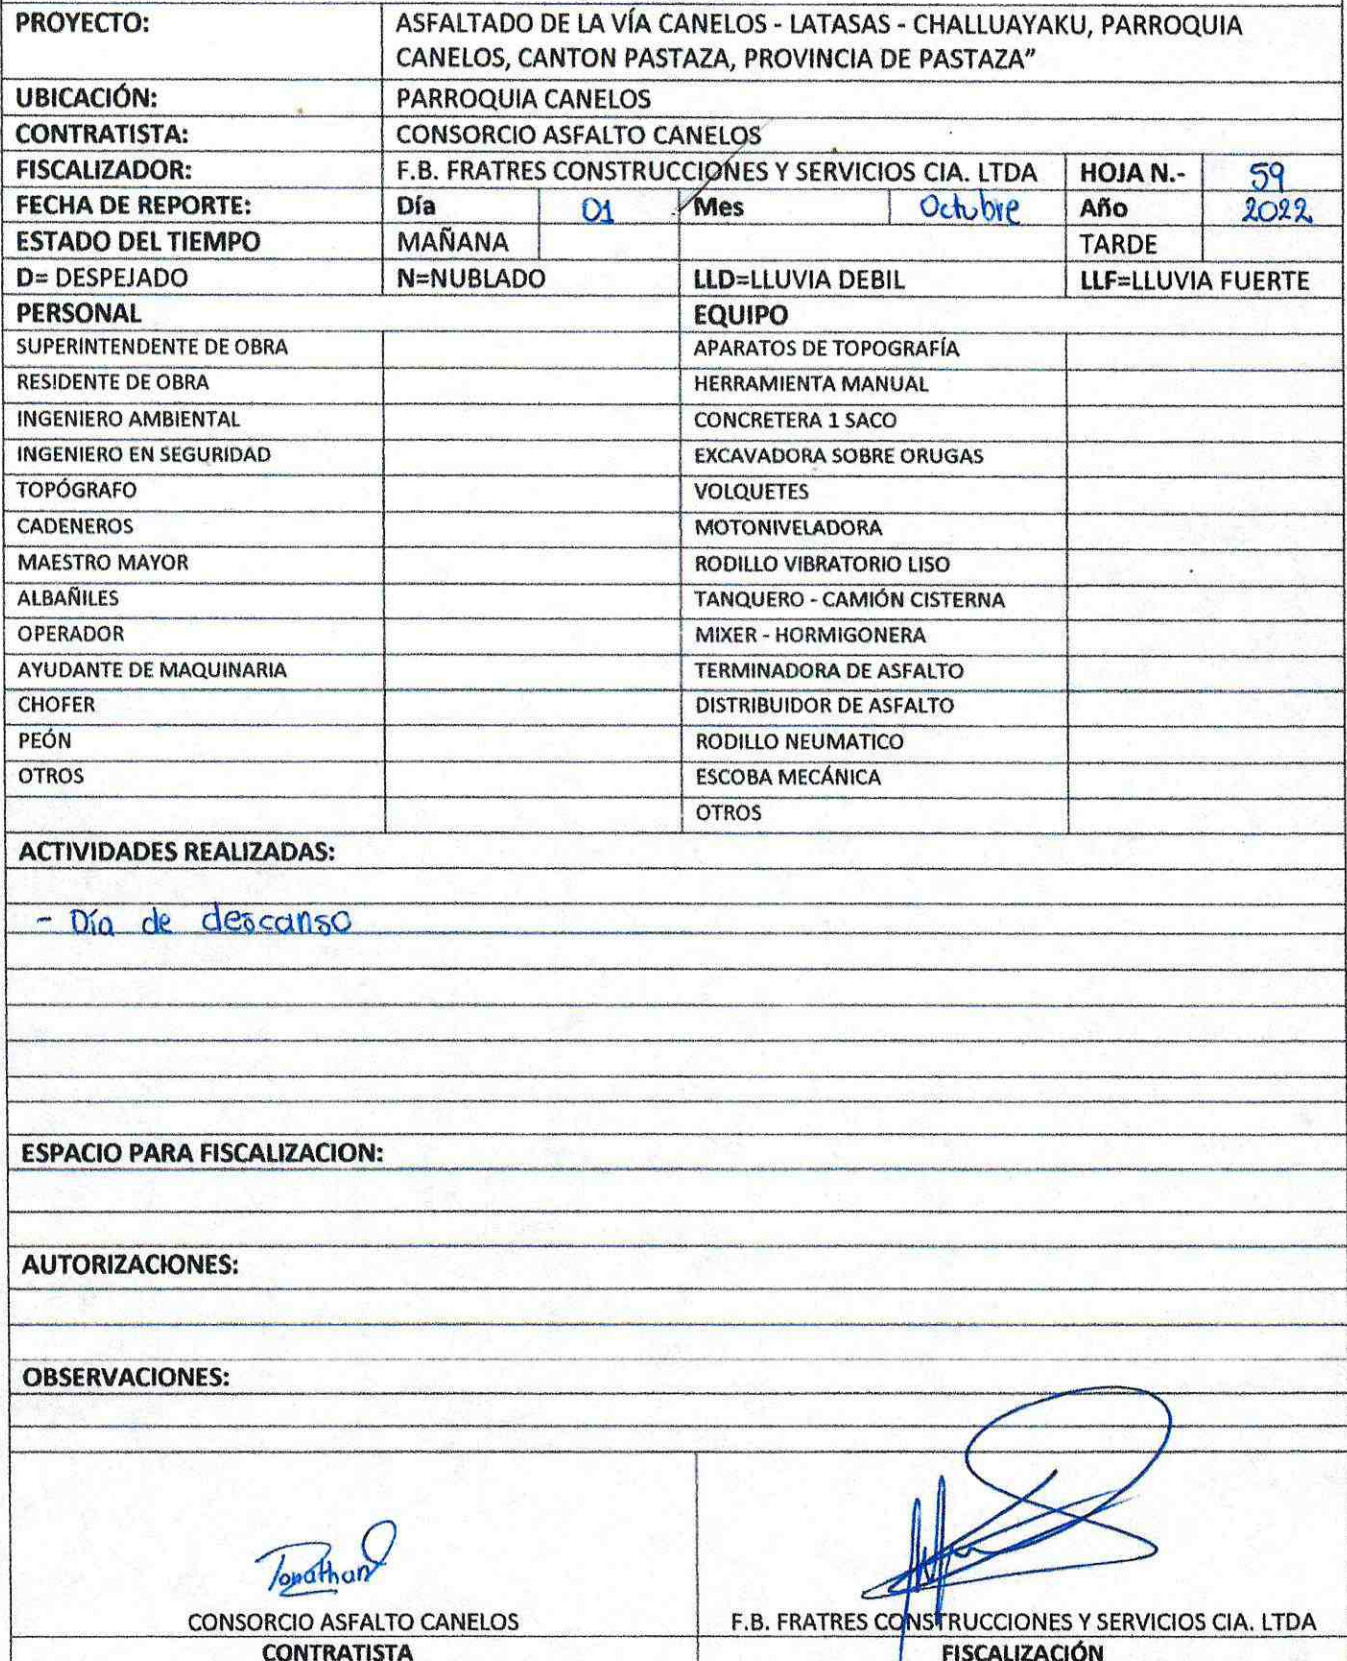 PROYECTO: ASFALTADO DE LA VÍA CANELOS - LATASAS - CHALLUAYAKU, PARROQUIA
CANELOS, CANTON PASTAZA, PROVINCIA DE PASTAZA”
UBICACIÓN: PARROQUIA CANELOS
CONTRATISTA: CONSORCIO ASFALTO CANELOS
FISCALIZADOR: F.B. FRATRES CONSTRUCCIONES Y SERVICIOS CIA. LTDA HOJA N.- 59
FECHA DE REPORTE: Día 01 Mes Octubre Año 2022
ESTADO DEL TIEMPO MAÑANA TARDE
D= DESPEJADO N=NUBLADO LLD=LLUVIA DEBIL LLF=LLUVIA FUERTE
PERSONAL EQUIPO
SUPERINTENDENTE DE OBRA APARATOS DE TOPOGRAFÍA
RESIDENTE DE OBRA HERRAMIENTA MANUAL
INGENIERO AMBIENTAL CONCRETERA 1 SACO
INGENIERO EN SEGURIDAD EXCAVADORA SOBRE ORUGAS
TOPÓGRAFO VOLQUETES
CADENEROS MOTONIVELADORA
MAESTRO MAYOR RODILLO VIBRATORIO LISO
ALBAÑILES TANQUERO - CAMIÓN CISTERNA
OPERADOR MIXER - HORMIGONERA
AYUDANTE DE MAQUINARIA TERMINADORA DE ASFALTO
CHOFER DISTRIBUIDOR DE ASFALTO
PEÓN RODILLO NEUMATICO
OTROS ESCOBA MECÁNICA
OTROS
ACTIVIDADES REALIZADAS:
- Día de descanso
ESPACIO PARA FISCALIZACION:
AUTORIZACIONES:
OBSERVACIONES:
Jonathan
CONSORCIO ASFALTO CANELOS F.B. FRATRES CONSTRUCCIONES Y SERVICIOS CIA. LTDA
CONTRATISTA FISCALIZACIÓN